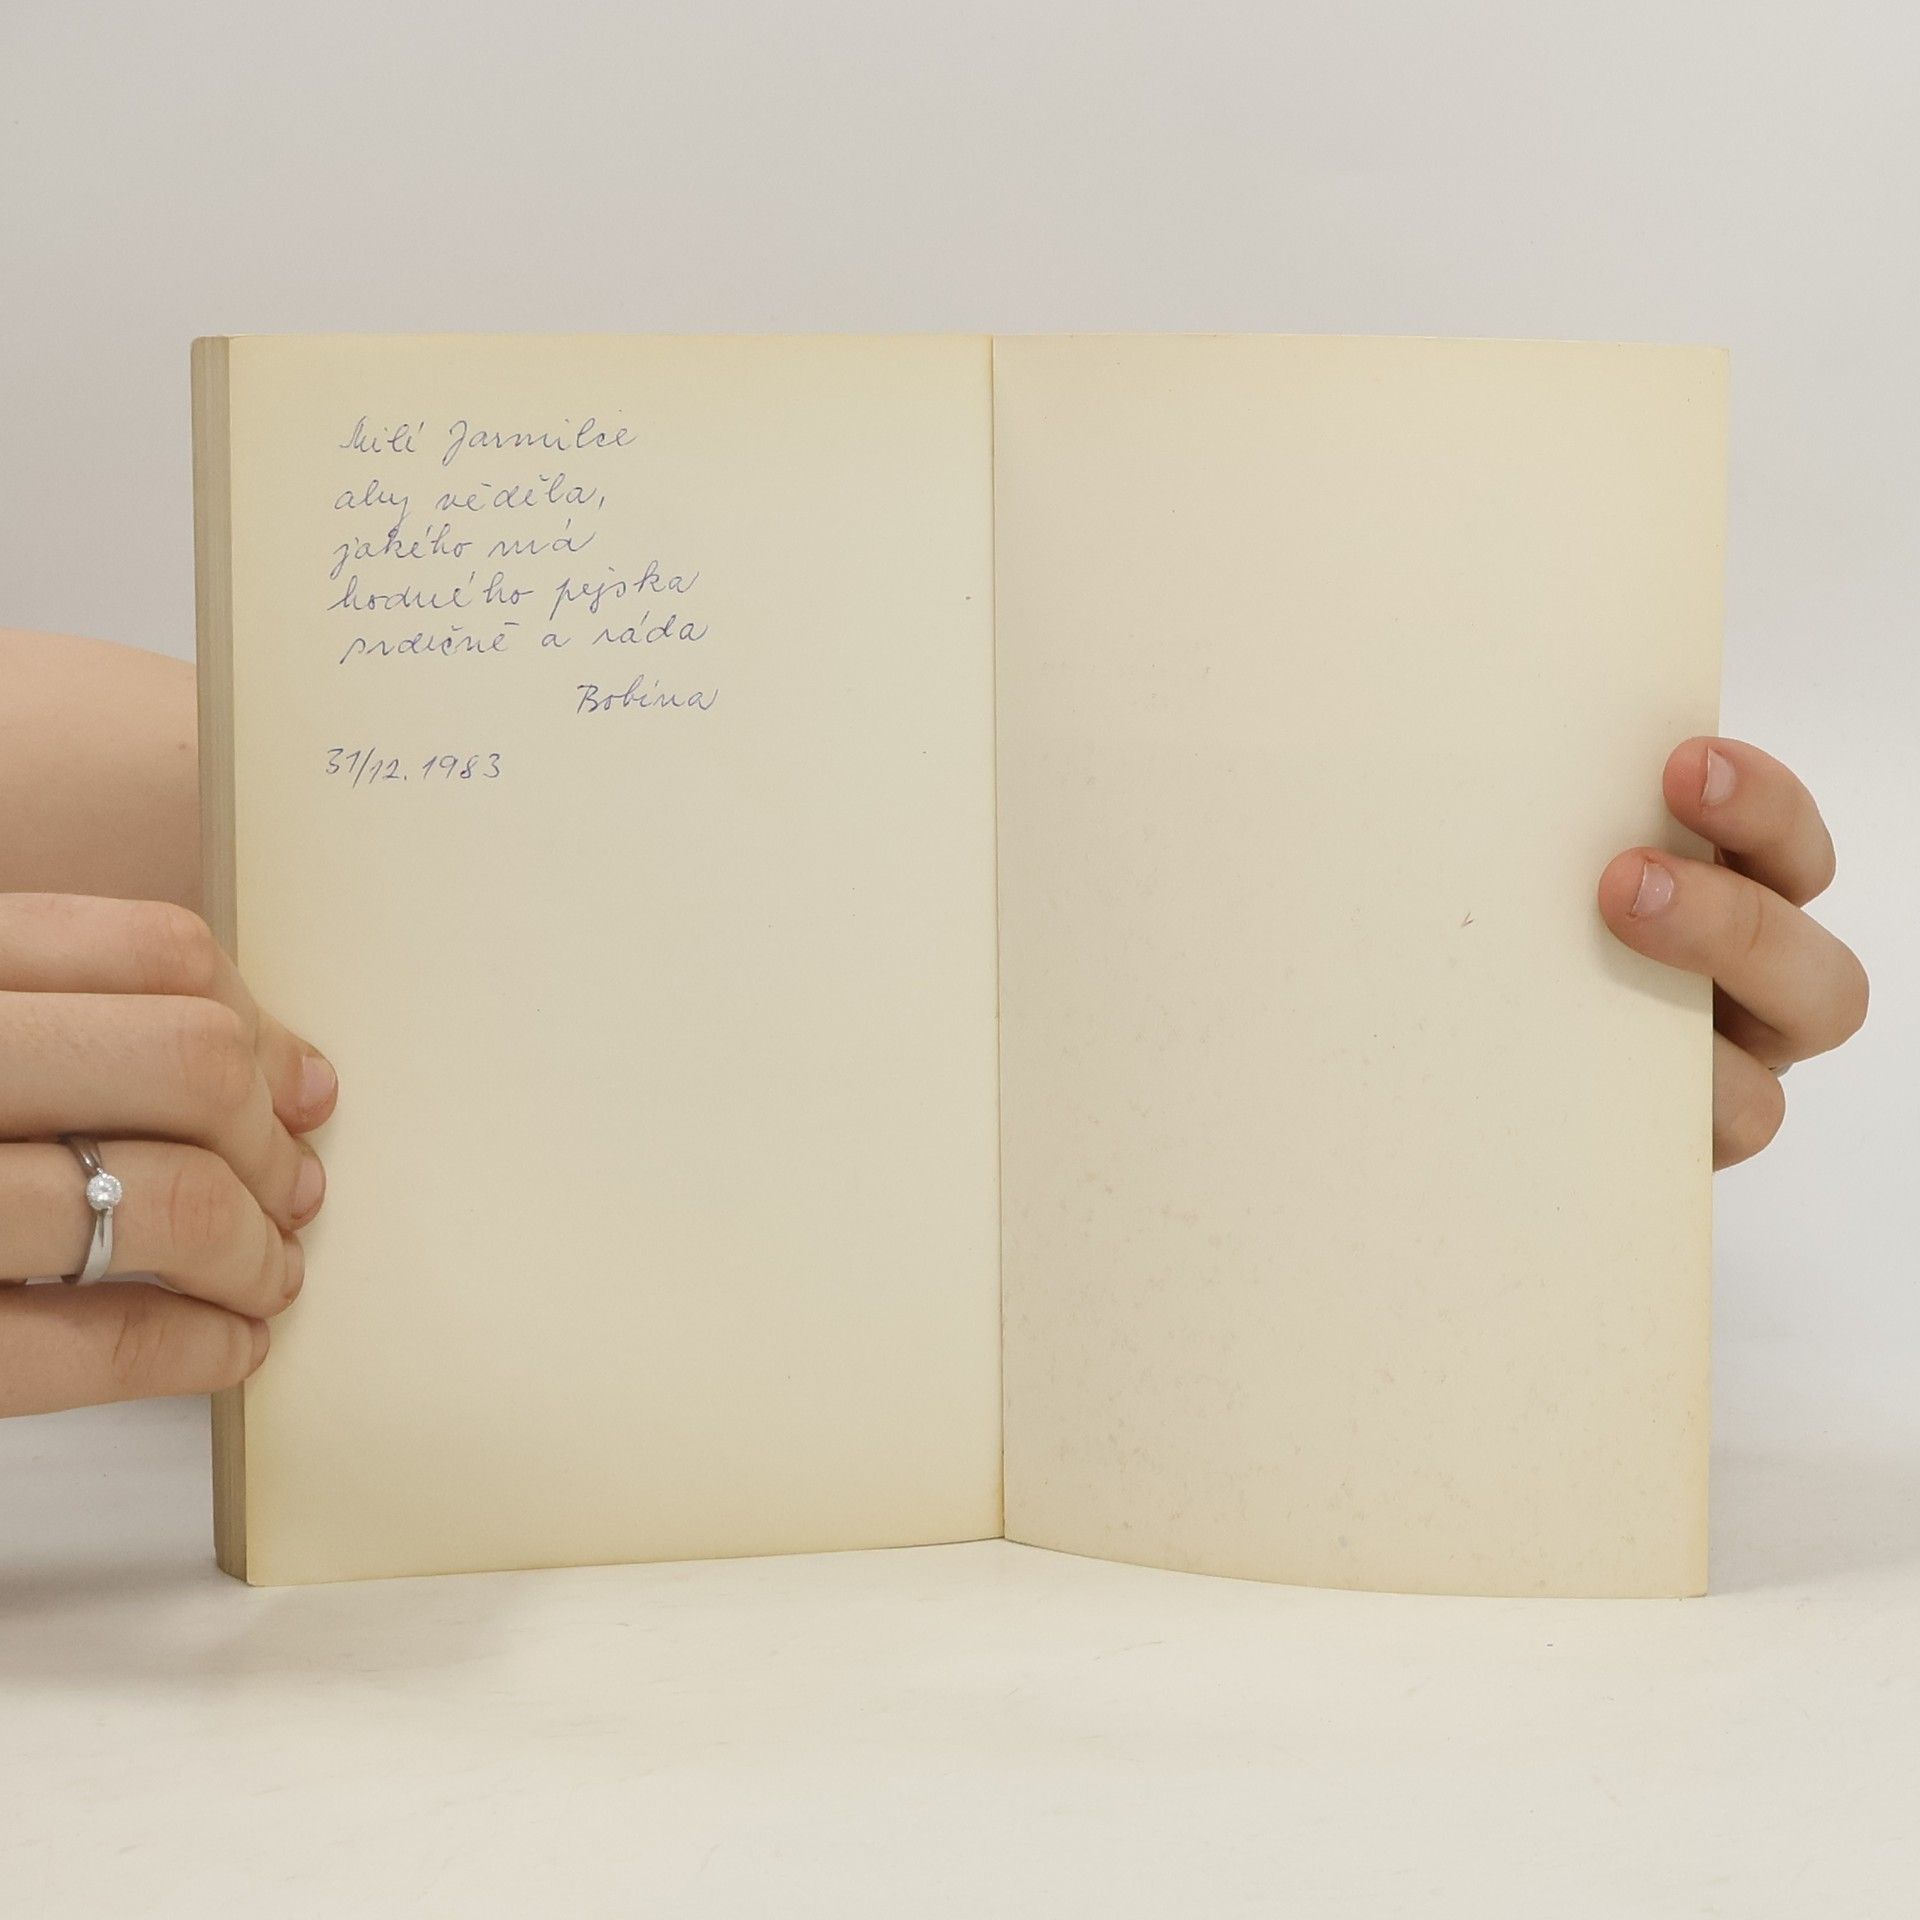 Milé Jarmilce
aby věděla,
jakého má
hodného pejska
srdečně a ráda
Bobina
31/12. 1983